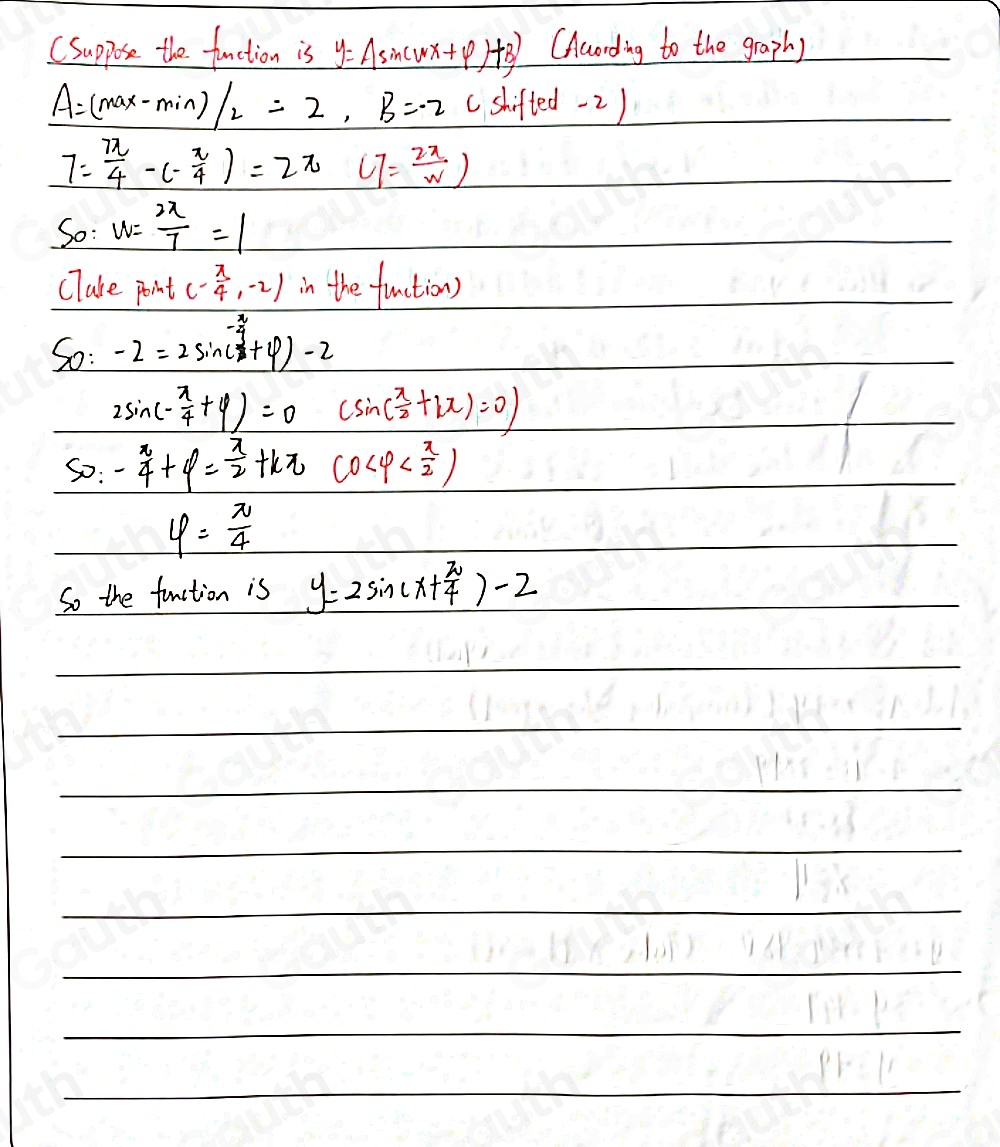 (Suppose the function is y=Asin(wx+φ)+B) (According to the graph)
A=(max-min)/2 = 2, B=-2 (shifted -2)
T=7π/4-(-π/4)=2π (T=2π/w)
So: w=2π/T=1
(Take point (-π/4,-2) in the function)
So: -2=2sin(-π/4+φ)-2
2sin(-π/4+φ)=0 (sin(π/2+kπ)=0)
so: -π/4+φ=π/2+kπ (0<φ<π/2)
φ=π/4
So the function is y=2sin(x+π/4)-2
Gauth